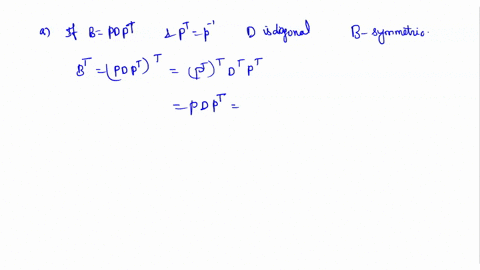 a) If B = PDP^T & P^T = P^-1 D is dogonal B - symmetric.
B^T = (PDP^T)^T = (P^T)^T D^T P^T
= PDP^T =